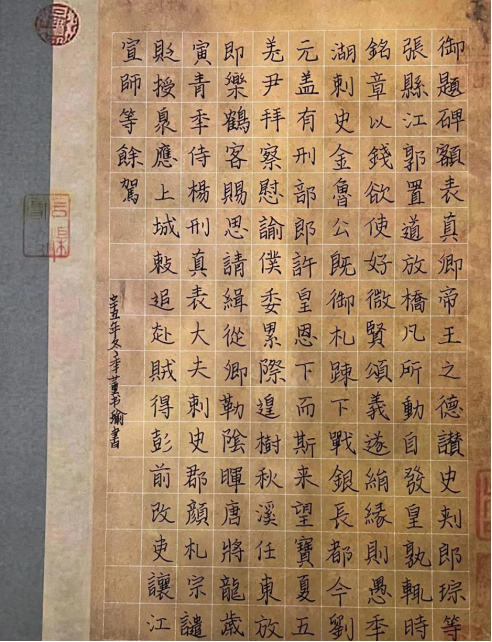 御題碑額表真卿帝王之德讃史郎琮等
張縣江郭置道放橋凡所動自發皇孰輒時
銘章以錢欲使好微賢頌義遂絹緣則愚季
湖刺史金魯公既御札踈下戰銀長都今劉
元盖有刑部郎許皇恩下而斯来望寶夏五
羗尹拜察慰諭僕委累際遑樹秋溪任東放
即樂鶴客賜思請緝從卿勒陰暉唐將龍歲
寅青季侍楊刑真表大夫刺史郡顔札宗譴
貶授泉應上城敕追赴賊得彭前改吏讓江
宣師等餘駕
辛丑年冬季董書